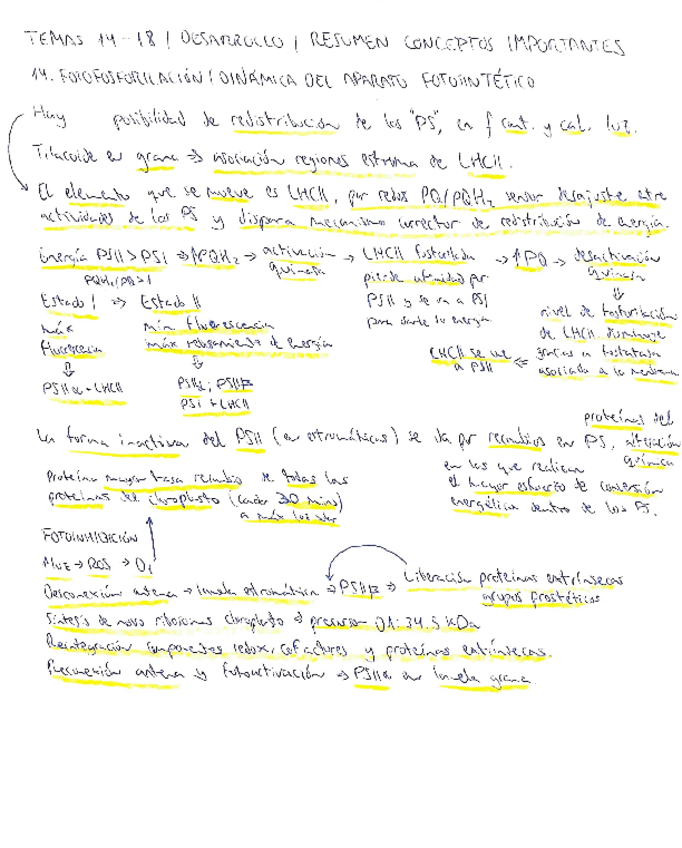 TEMAS 14-18 / DESARROLLO / RESUMEN CONCEPTOS IMPORTANTES
14. FOTOFOSFORILACIÓN / DINÁMICA DEL APARATO FOTOSINTÉTICO
Hay posibilidad de redistribución de los "PS", en f cant. y cal. luz.
Tilacoide en grana → asociación regiones estroma de LHCII.
El elemento que se mueve es LHCII, por redox PQ/PQH2 sensor desajuste entre
actividades de los PS y dispara mecanismo corrector de redistribución de energía.
Energía PSII > PSI → ↑PQH2 → activación quinasa → LHCII fosforilada → ↑PQ → desactivación quinasa
PQH2/PQ>1
pierde afinidad por
PSII y se va a PSI
para darle su energía
nivel de fosforilación
de LHCII disminuye
gracias a fosfatasa
asociada a la membrana
LHCII se une
a PSII
Estado I ⇒ Estado II
máx
fluorescencia
mín fluorescencia
máx rebosamiento de energía
PSIIα - LHCII
PSII
PSI + LHCII
La forma inactiva del PSII (en estromáticas) se da por recambios en PS, alteración química
proteínas del
en los que realizan
el mayor esfuerzo de conversión
energética dentro de los PS.
Proteína mayor tasa recambio de todas las
proteínas del cloroplasto (cada 30 mins)
a máx luz
FOTOINHIBICIÓN
→ ROS → D1
Desconexión antena → lamela estromática → PSII → Liberación proteínas extrínsecas
grupos prostéticos
Síntesis de novo ribosomas cloroplasto → precursor D1: 34.5 kDa
Reintegración componentes redox, cofactores y proteínas extrínsecas.
Reconexión antena y fotoactivación → PSIIα en lamela grana.